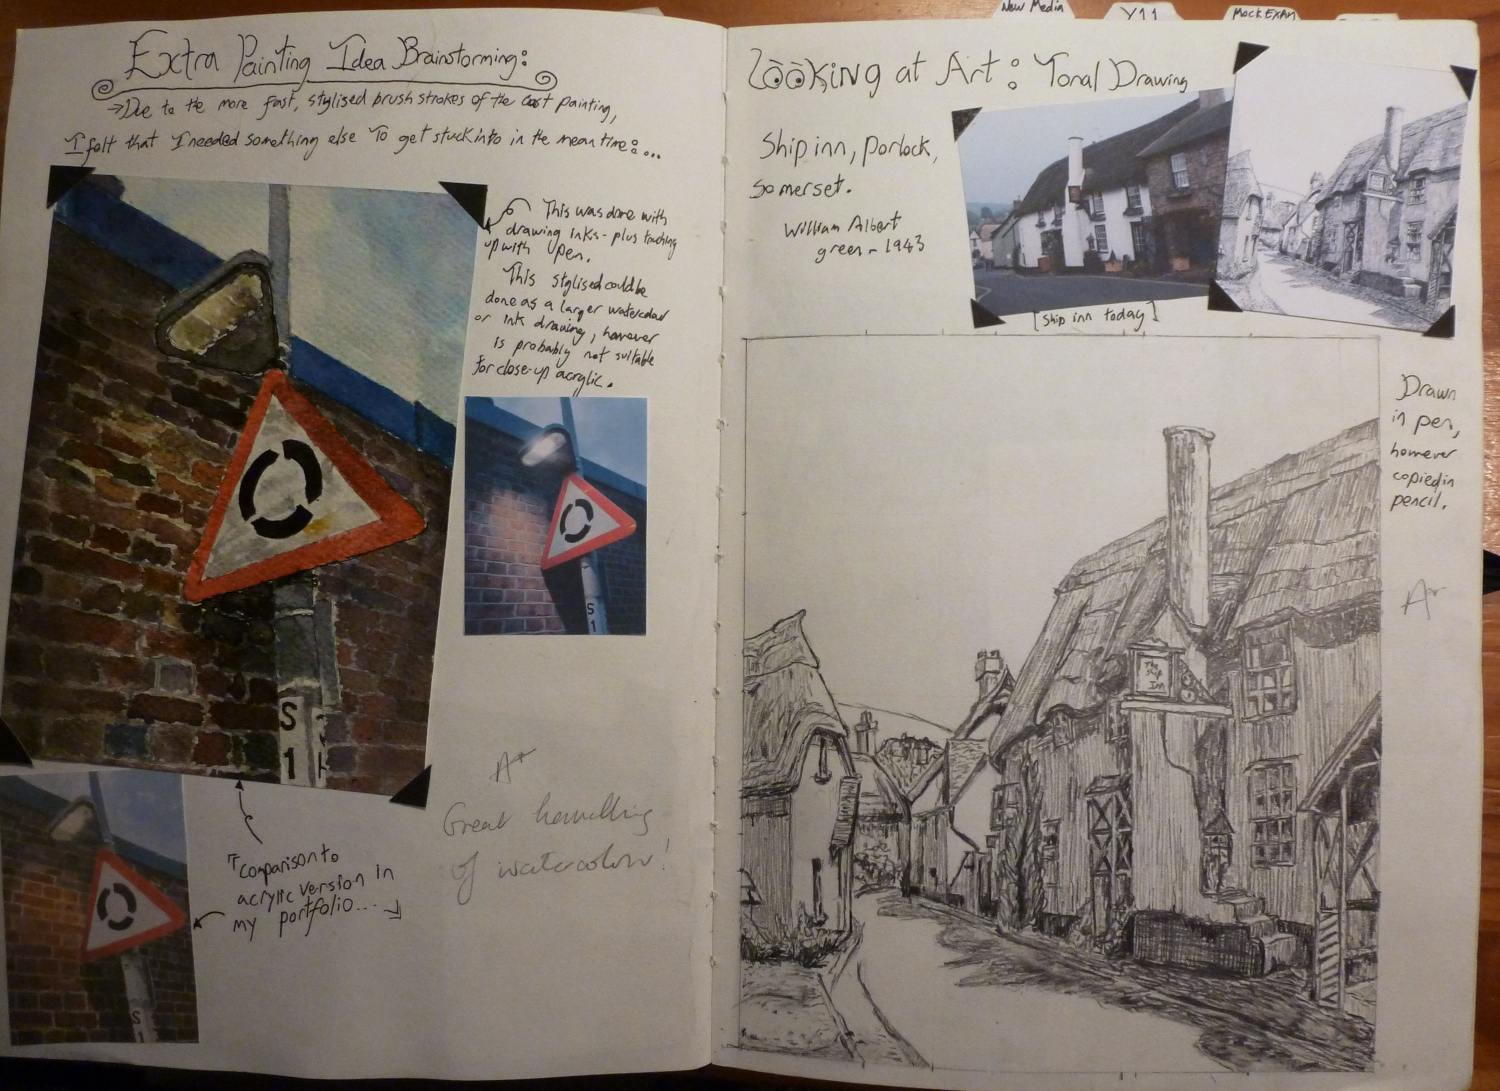 New Media
Y11
Mock Exam
Extra Painting Idea Brainstorming:
→Due to the more fast, stylised brush strokes of the last painting,
I felt that I needed something else to get stuck into in the mean time:...
This was done with
drawing inks - plus touching
up with pen.
This stylised could be
done as a larger watercolour
or ink drawing, however
is probably not suitable
for close-up acrylic.
S
1
S
1
S
1
A*
Great handling
of watercolour!
"Comparison to
acrylic version in
my portfolio...
Looking at Art: Tonal Drawing
Ship inn, Porlock,
Somerset.
William Albert
green - 1943
[Ship inn today]
Drawn
in pen,
however
copied in
pencil.
A*
The
Ship
Inn